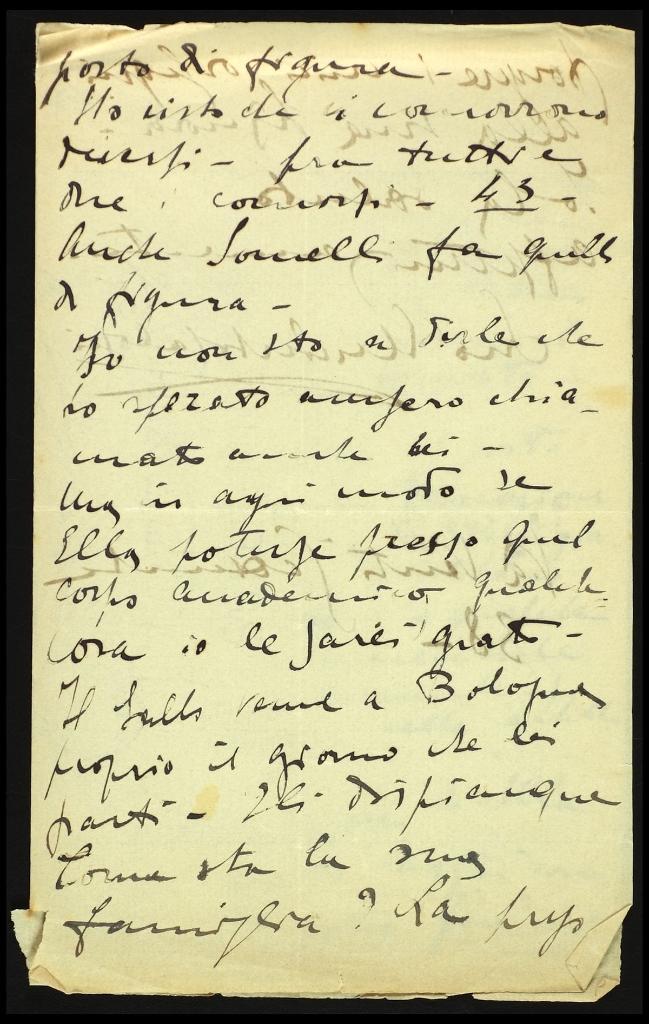 posto di figura -
Ho visto che vi concorrono
diversi - fra tutti e
due i concorsi - 43 -
Anche Somelli fa quello
di figura -
Io non sto a dirle che
ho sperato avessero chia-
mato anche lei -
Ma in ogni modo se
Ella potesse presso quel
corpo accademico qualche
cosa io le sarei grato -
Il Gallo venne a Bologna
proprio il giorno che lei
partì - Gli dispiacque
Come sta la sua
famiglia? La prego